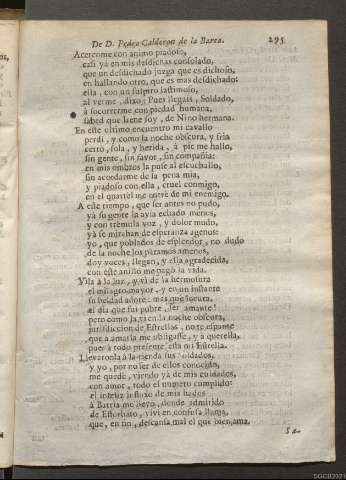 De D. Pedro Calderon de la Barca. 295
Acerqueme con animo piadoso,
casi yà en mis desdichas consolado,
que un desdichado juzga que es dichoso,
en hallando otro, que es mas desdichado:
ella, con un suspiro lastimoso,
al verme, dixo: Pues llegais, Soldado,
à socorrerme con piedad humana,
sabed que Irene soy, de Nino hermana.
En este ultimo encuentro mi cavallo
perdi, y como la noche obscura, y fria
cerrò, sola, y herida, à pie me hallo,
sin gente, sin favor, sin compañia:
en mis ombros la puse al escuchallo,
sin acordarme de la pena mia,
y piadoso con ella, cruel conmigo,
en el quartèl me entrè de mi enemigo.
A este tiempo, que ser antes no pudo,
yà su gente la avia echado menos,
y con tremula voz, y dolor mudo,
yà se mirahan de esperanza agenos:
yo, que poblados de esplendor, no dudo
de la noche los paramos amenos,
doy voces, llegan, y ella agradecida,
con este anillo me pagò la vida.
Vila à la luz, y vi de la hermosura
el milagro mayor, y en un instante
su beldad adorè: mas què locura,
el dia que fui pobre, ser amante!
pero como la vi en la noche obscura,
jurisdiccion de Estrellas, no te espante
que à amarla me obligasse, y à quererla,
pues à todo presente està mi Estrella.
Llevaronla à la tienda sus Soldados,
y yo, por no ser de ellos conocido,
me quedè, viendo yà de mis cuidados,
con amor, todo el numero cumplido:
el infeliz influxo de mis hados
à Batria me llevò, donde admitido
de Estorbato, vivi en confusa llama,
que, en fin, descansa mal el que bien ama.